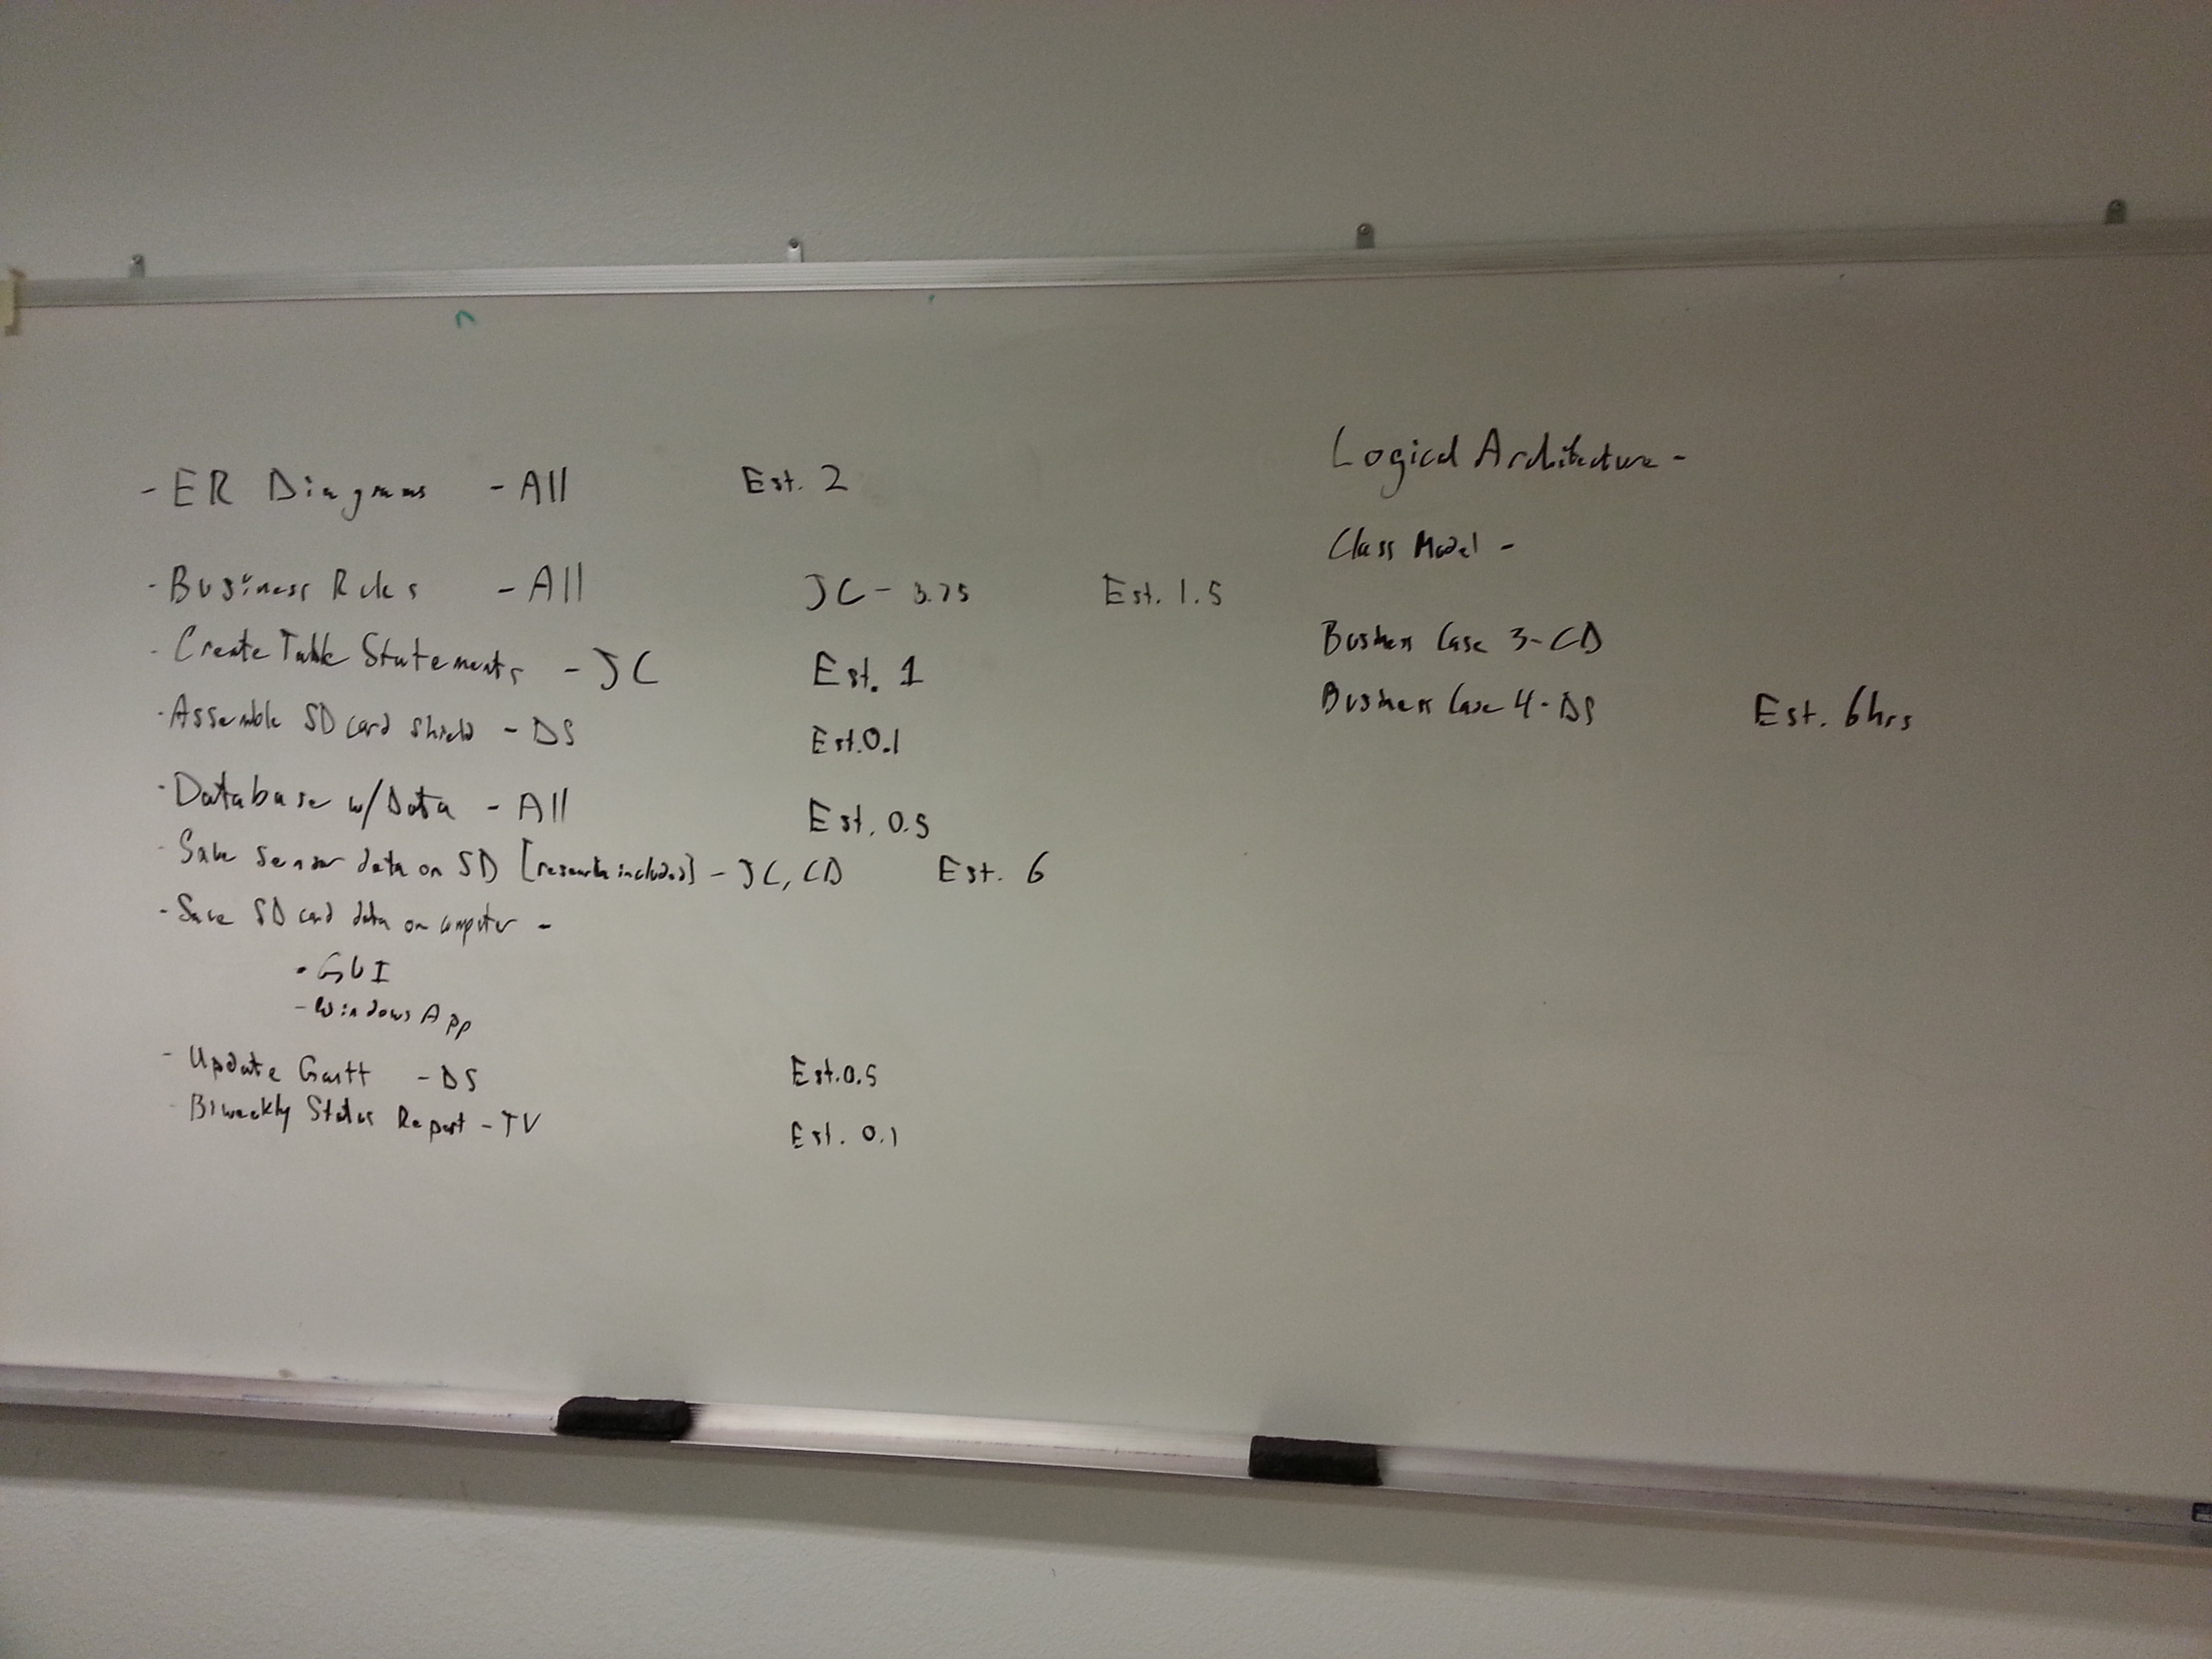 - ER Diagrams - All Est. 2
- Business Rules - All JC - 3.75 Est. 1.5
- Create Table Statements - JC Est. 1
- Assemble SD card shield - DS Est. 0.1
- Database w/Data - All Est. 0.5
- Save sensor data on SD [research included] - JC, CD Est. 6
- Save SD card data on computer -
- GUI
- Windows App
- Update Gantt - DS Est. 0.5
- Biweekly Status Report - TV Est. 0.1
Logical Architecture -
Class Model -
Business Case 3 - CD
Business Case 4 - DS Est. 6hrs